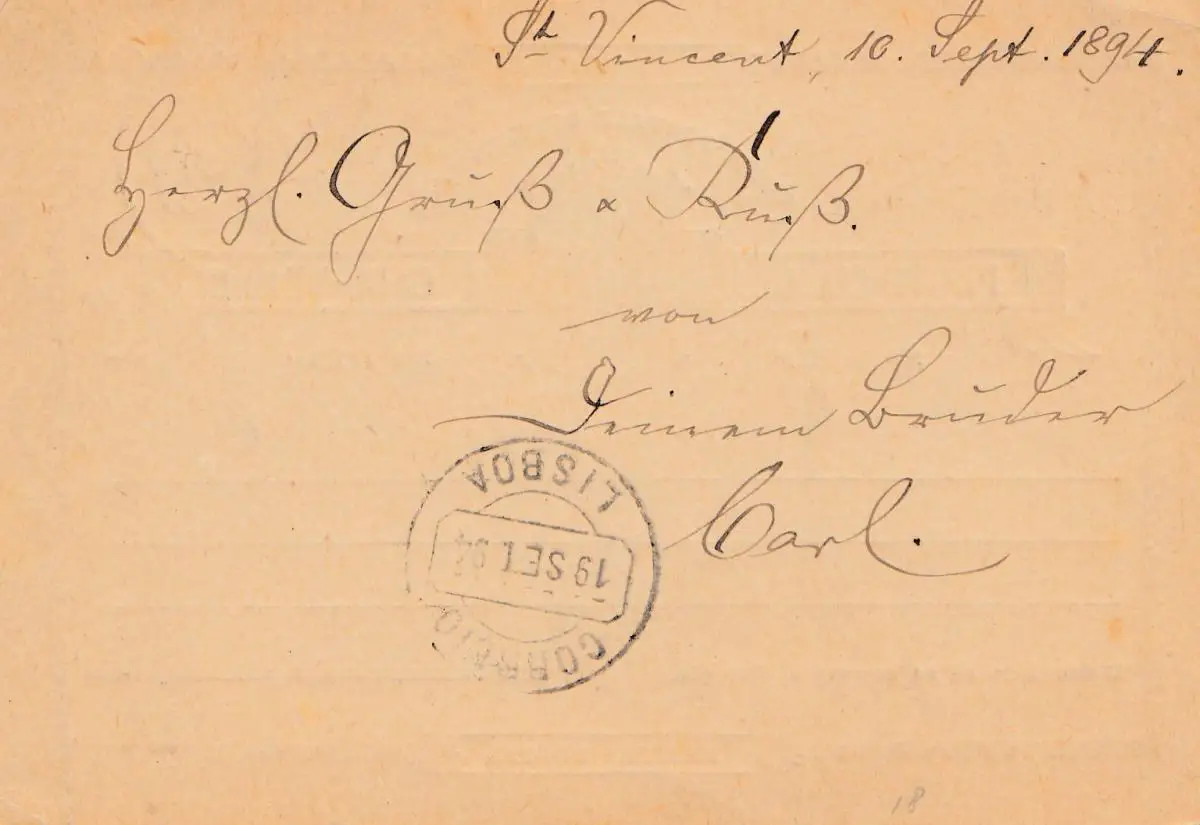 St Vincent, 10. Sept. 1894.
Herzl. Gruß & Kuß.
von
Deinem Bruder
Carl.
LISBOA
19 SET. 94
CORREIO
18